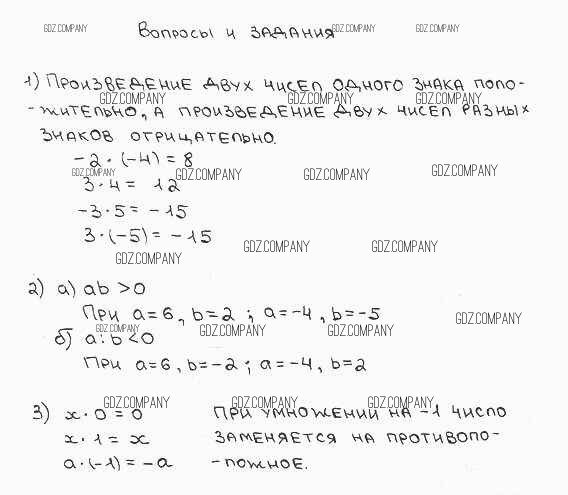 GDZ.COMPANY Вопросы и задания GDZ.COMPANY GDZ.COMPANY
1) Произведение двух чисел одного знака поло-
GDZ.COMPANY GDZ.COMPANY GDZ.COMPANY
-жительно, а произведение двух чисел разных
знаков отрицательно.
-2 · (-4) = 8
GDZ.COMPANY GDZ.COMPANY GDZ.COMPANY GDZ.COMPANY
3 · 4 = 12
-3 · 5 = -15
3 · (-5) = -15
GDZ.COMPANY GDZ.COMPANY
GDZ.COMPANY
2) а) ab > 0
При a = 6, b = 2 ; a = -4, b = -5
GDZ.COMPANY GDZ.COMPANY GDZ.COMPANY GDZ.COMPANY
б) a : b < 0
При a = 6, b = -2 ; a = -4, b = 2
GDZ.COMPANY GDZ.COMPANY GDZ.COMPANY
3) x · 0 = 0 При умножении на -1 число
x · 1 = x заменяется на противопо-
a · (-1) = -a -ложное.